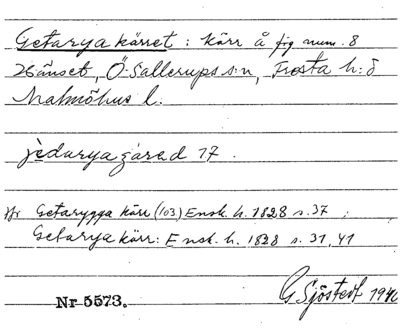 Getarya kärret : kärr å fig num. 8
Hänset, Ö. Sallerups s:n, Frosta h:d
Malmöhus l.
17.
jfr Getarygga kärr (103) Ensk. h. 1828 s. 37 ;
Getarya kärr: Ensk. h. 1828 s. 31, 41
G Sjöstedt 1946
Nr 5573.